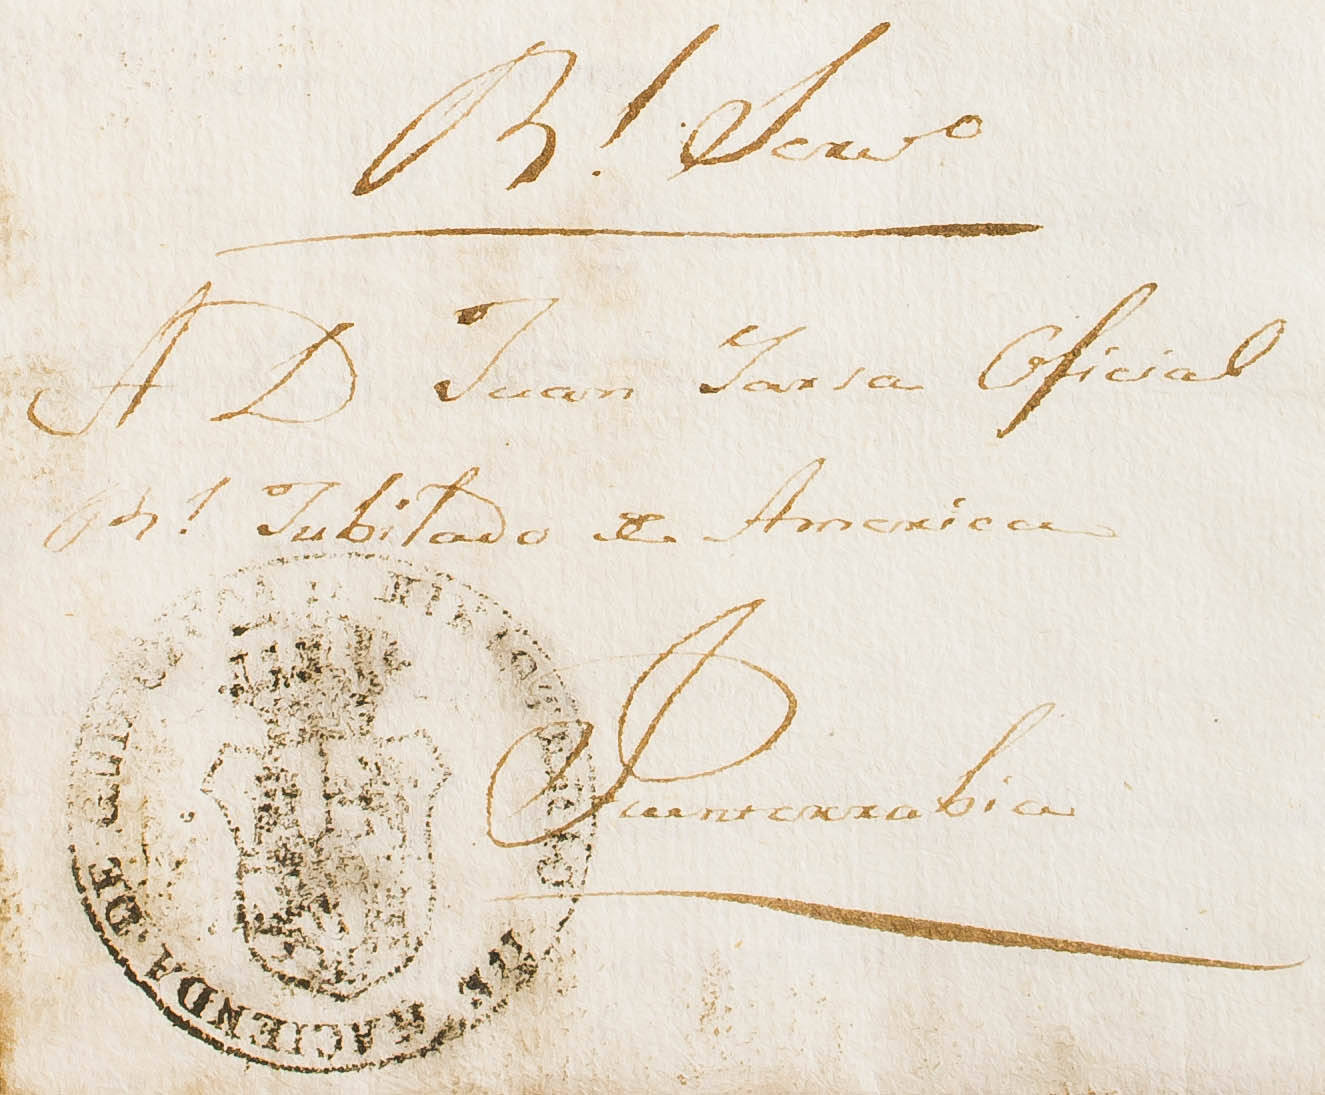 R.l Servo
A D Juan Jarsa Oficial
Rl Jubilado de America
Fuenterrabia
DE HACIENDA DE GUIPUZCOA